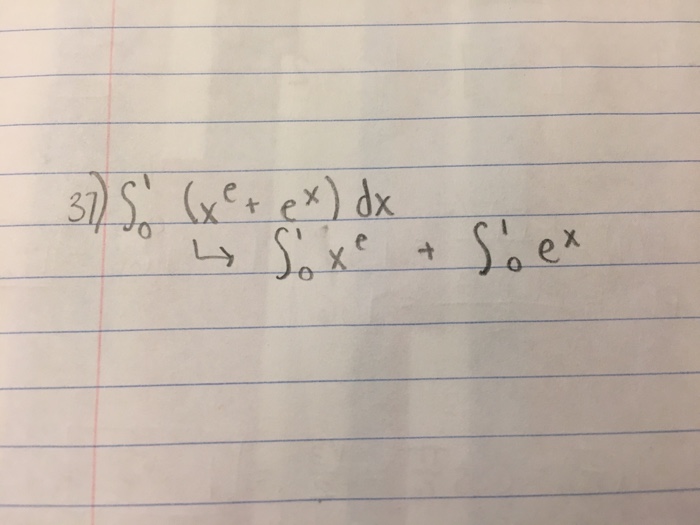 37) ∫₀¹ (xᵉ + eˣ) dx
↳ ∫₀¹ xᵉ + ∫₀¹ eˣ